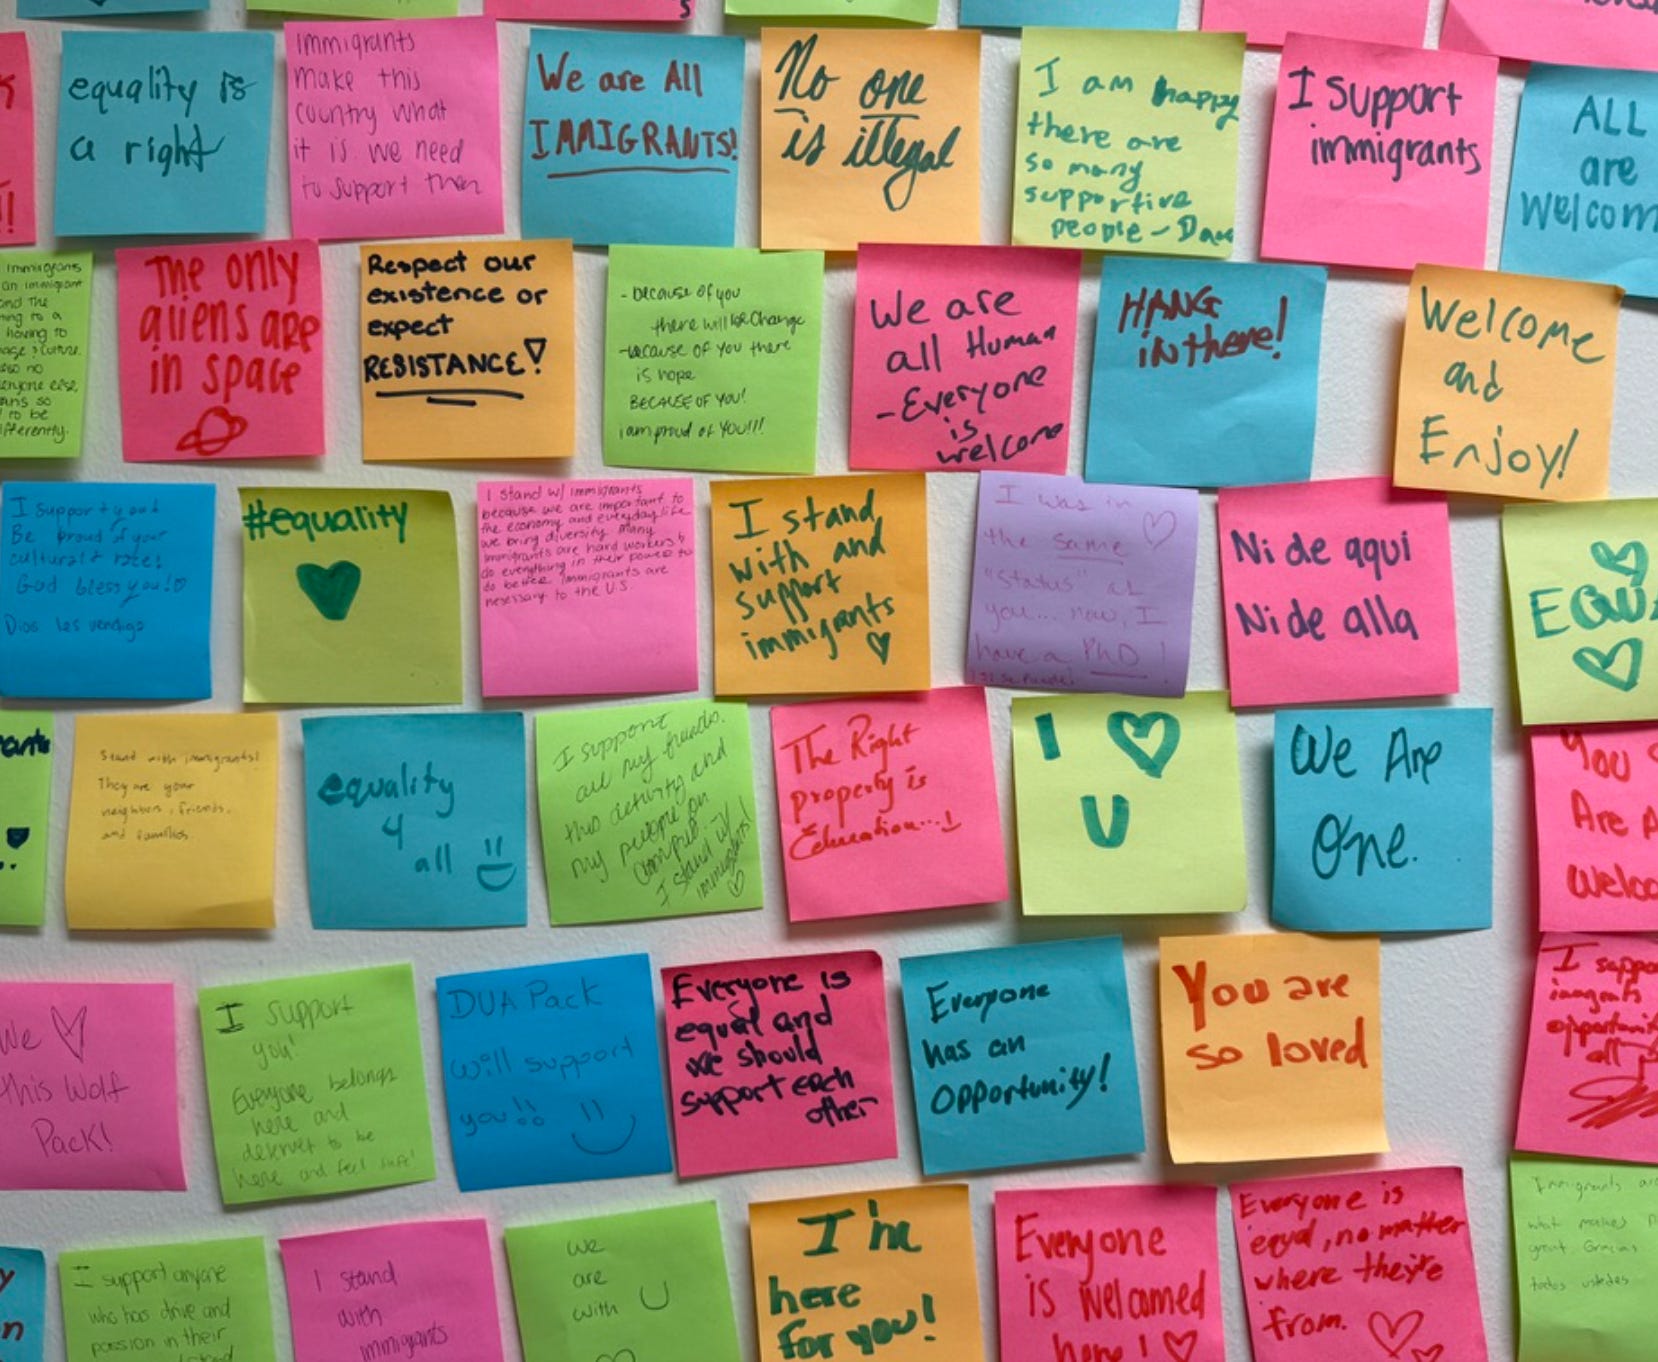 s
equality is
a right
Immigrants
make this
country what
it is. we need
to support them
We are All
IMMIGRANTS!
No one
is illegal
I am happy
there are
so many
supportive
people -
I support
immigrants
ALL
are
Welcom
Immigrants
an immigrant
and the
ning to a
having to
no
enyone else,
so
to be
ifferently.
The only
aliens are
in space
Respect our
existence or
expect
RESISTANCE!
- because of you
there will be change
- because of you there
is hope
BECAUSE OF YOU!
i am proud of YOU!!!
We are
all Human
- Everyone
is
welcome
HANG
in there!
Welcome
and
Enjoy!
I support you!
Be proud of your
culture & race!
God bless you!
Dios les vendiga
#equality
I stand w/ immigrants
because we are important to
the economy and everyday life
we bring diversity. Many
immigrants are hard workers &
do everything in their power to
do better. Immigrants are
necessary to the U.S.
I stand
with and
support
immigrants
I was in
the same
"status" as
you... now, I
have a PhD!
Ni de aqui
Ni de alla
EQU
Stand with immigrants!
They are your
neighbors, friends,
and families.
equality
4
all
I support
all my friends.
this activity and
my people on
campus.
I stand w/
immigrants!
The Right
property is
Education...!
I ♡
U
We Are
One.
You
Are
Welco
We ♡
this Wolf
Pack!
I support
you!
Everyone belongs
here and
deserves to be
here and feel safe!
DUA Pack
will support
you!!
Everyone is
equal and
we should
support each
other
Everyone
has an
opportunity!
You are
so loved
I suppo
imagrats
opportunit
all
I support anyone
who has drive and
passion in their
I stand
with
immigrants
we
are
with U
I'm
here
for you!
Everyone
is welcomed
here! ♡
Everyone is
equal, no matter
where they're
from.
Immigrants are
what makes
great. Gracias
todos ustedes